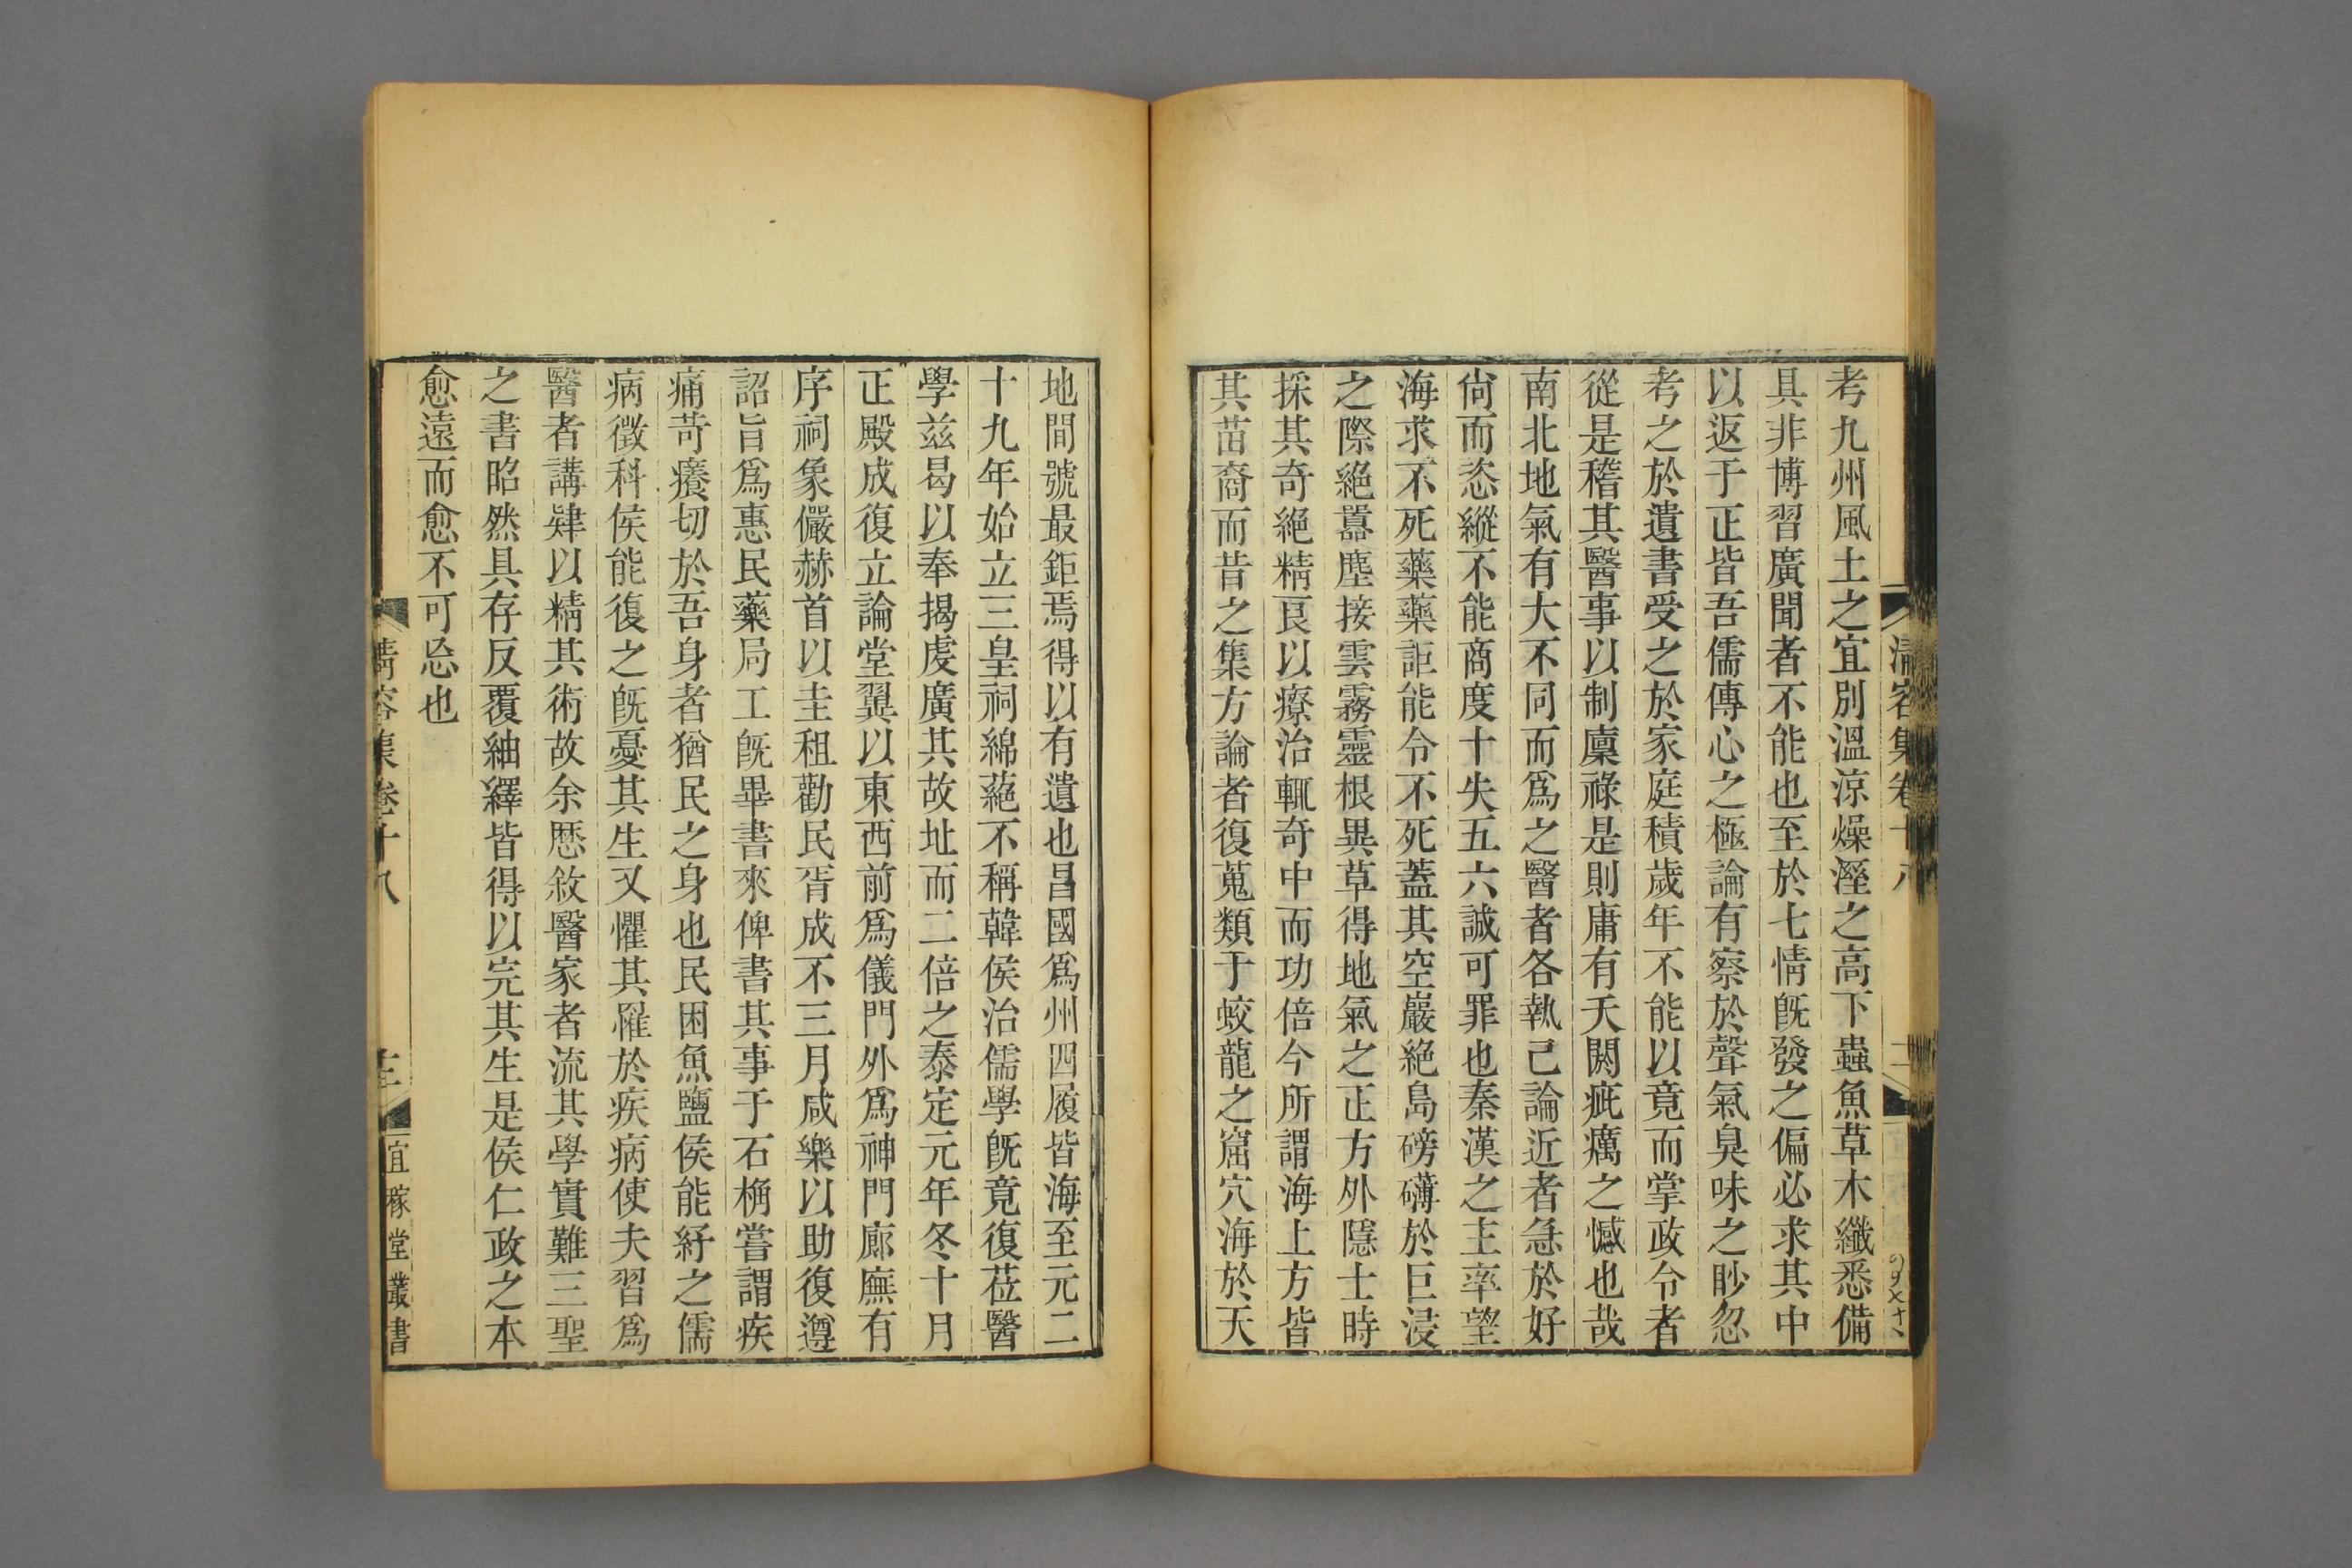 考九州風土之宜別溫涼燥溼之高下蟲魚草木纖悉備
具非博習廣聞者不能也至於七情旣發之偏必求其中
以返于正皆吾儒傳心之極論有察於聲氣臭味之眇忽
考之於遺書受之於家庭積歲年不能以竟而掌政令者
從是稽其醫事以制廩祿是則庸有夭閼疵癘之憾也哉
南北地氣有大不同而爲之醫者各執己論近者急於好
尙而恣縱不能商度十失五六誠可罪也秦漢之主率望
海求不死藥藥詎能令不死蓋其空巖絕島磅礴於巨浸
之際絕囂塵接雲霧靈根異草得地氣之正方外隱士時
採其奇絕精良以療治輒奇中而功倍今所謂海上方皆
其苗裔而昔之集方論者復蒐類于蛟龍之窟穴海於天
地間號最鉅焉得以有遺也昌國爲州四履皆海至元二
十九年始立三皇祠綿蕝不稱韓侯治儒學旣竟復莅醫
學兹曷以奉揭虔廣其故址而二倍之泰定元年冬十月
正殿成復立論堂翼以東西前爲儀門外爲神門廊廡有
序祠象儼赫首以圭租勸民胥成不三月咸樂以助復遵
詔旨爲惠民藥局工旣畢書來俾書其事于石桷嘗謂疾
痛苛癢切於吾身者猶民之身也民困魚鹽侯能紓之儒
病徵科侯能復之旣憂其生又懼其罹於疾病使夫習爲
醫者講肄以精其術故余歷敘醫家者流其學實難三聖
之書昭然具存反覆紬繹皆得以完其生是侯仁政之本
愈遠而愈不可忘也
清容集卷十八
宜稼堂叢書